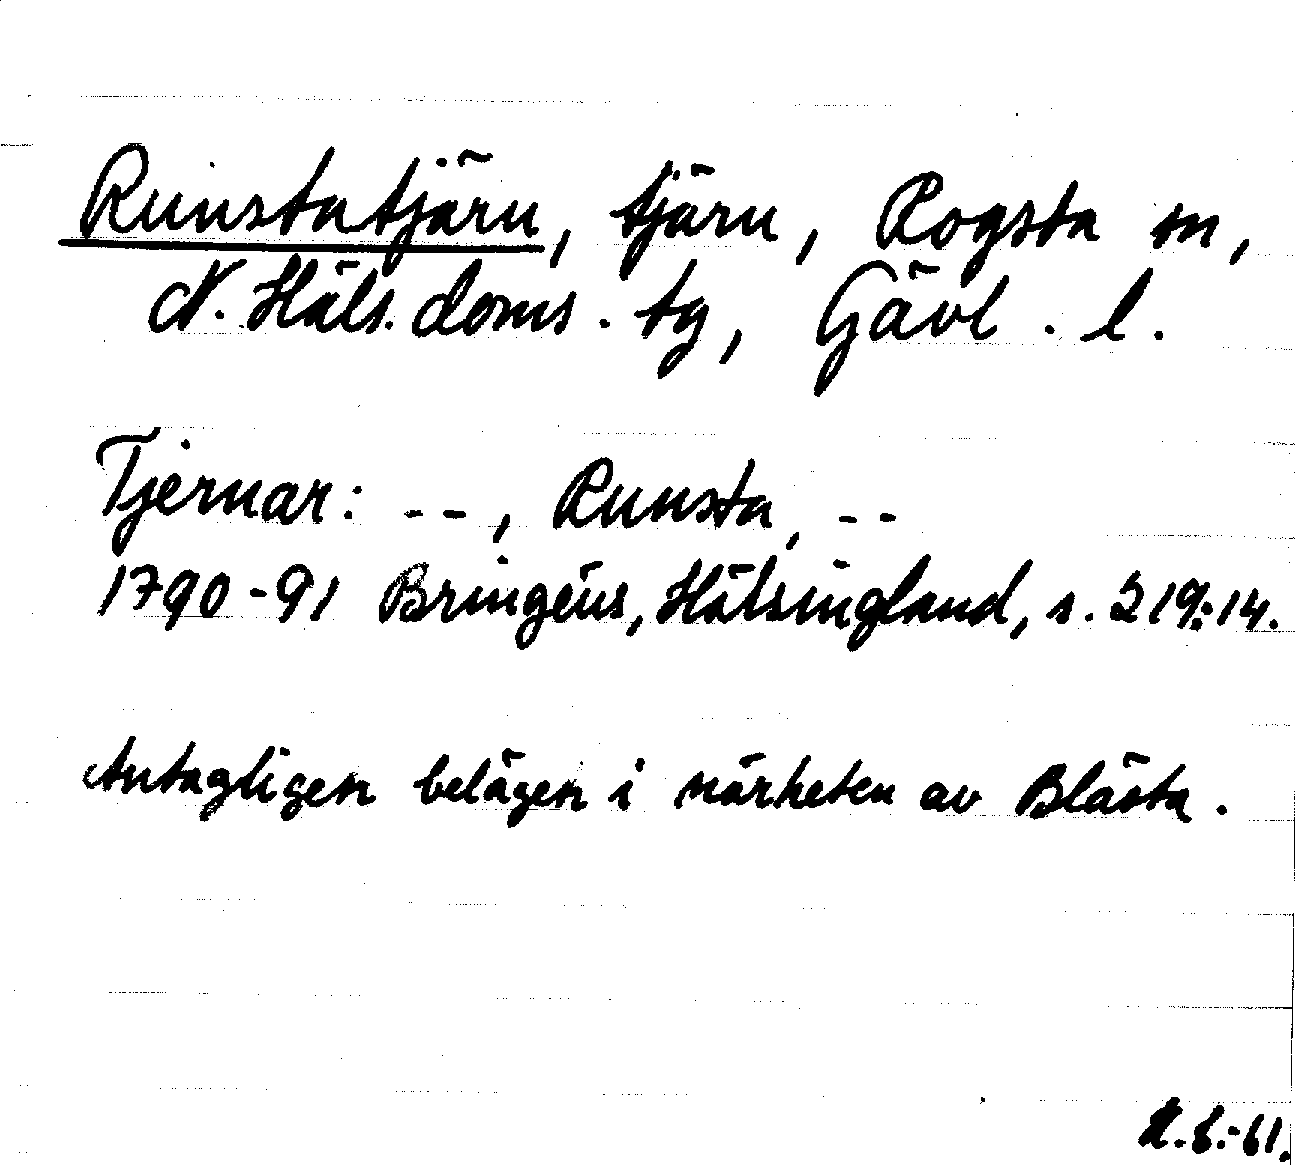 Runstatjärn, tjärn, Rogsta sn,
N. Häls. doms. tg, Gävl. l.
Tjernar: --, Runsta, --
1790-91 Bringéus, Hälsingland, s. 219:14.
Antagligen belägen i närheten av Blästa.